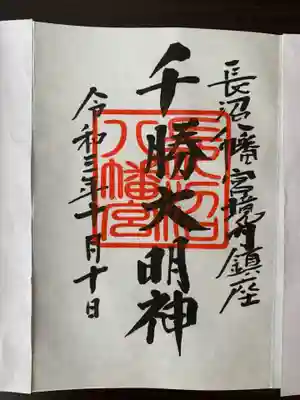 長沼八幡宮境内鎮座
千勝大明神
長沼
八幡宮
令和三年十月十日